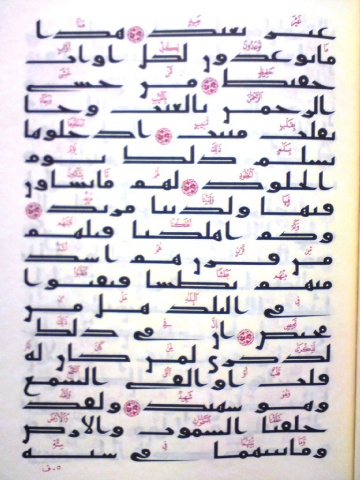 غير بعيد هذا
ما توعدون لكل اواب
حفيظ من خشى
الرحمن بالغيب وجا
بقلب منيب ادخلوها
بسلم ذلك يوم
الخلود لهم ما يشاون
فيها ولدينا مزيد
وكم اهلكنا قبلهم
من قرن هم اشد
منهم بطشا فنقبوا
فى البلد هل من
محيص ان فى ذلك
لذكرى لمن كان له
قلب او القى السمع
وهو شهيد ولقد
خلقنا السموت والارض
وما بينهما فى ستة